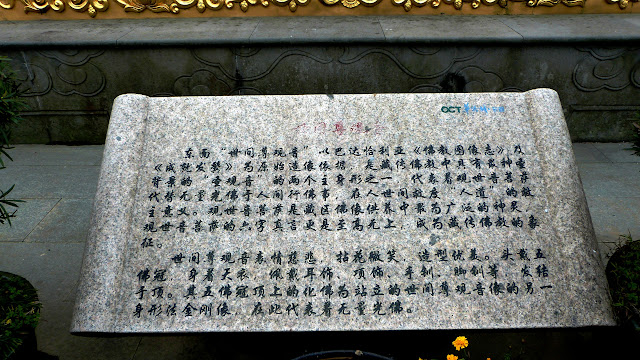 OCT
世间尊观音
东南“世间尊观音”以巴达恰利亚《佛教图像志》及
《成就发髻》为原始造像依据，是藏传佛教中具有最神圣
背景的“圣观音”的两个主身形之一，代表着观世音菩萨
代替无量光佛于人间行佛事，在人世间救度“人道”的救
主意义。观世音菩萨是藏区佛像供养中最为广泛的神灵，
观世音菩萨的六字真言更是至高无上，成为藏传佛教的象
征。
世间尊观音表情慈悲，拈花微笑，造型优美。头戴五
佛冠，身着天衣，佩戴耳饰、项饰、手钏、脚钏等，发结
于顶。其五佛冠顶上的化佛为站立的世间尊观音像的另一
身形法金刚像，在此代表着无量光佛。